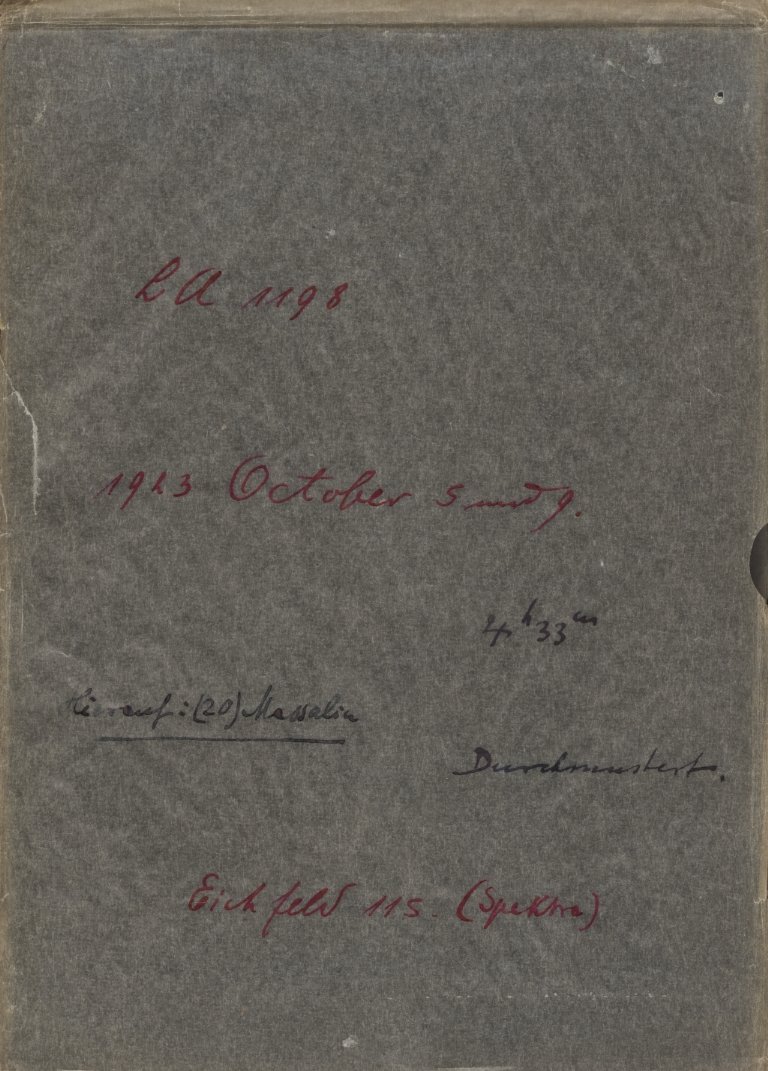 LA 1198
1923 October 5 und 9.
4h 33m
Hierauf: (20) Massalia
Durchmustert.
Eichfeld 115. (Spektra)